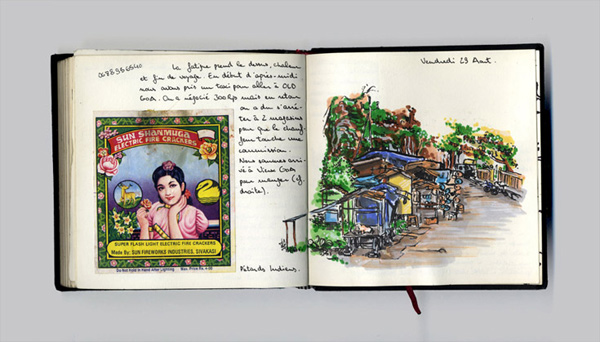 0688356540
La fatigue prend le dessus, chaleur
et fin de voyage. En début d'après-midi
nous avons pris un taxi pour aller à OLD
GOA. On a négocié 300 Rp mais en retour
on a du s'arrê-
ter à 2 magasins
pour que le chauf-
feur touche une
commission.
Nous sommes arri-
vé à Vieux Goa
pour manger (cf.
droite).
SUN SHANMUGA
ELECTRIC FIRE CRACKERS
SUPER FLASH LIGHT ELECTRIC FIRE CRACKERS
Made By: SUN FIREWORKS INDUSTRIES, SIVAKASI
Do Not Hold in Hand After Lighting Max. Price Rs.
Pétards Indiens.
Vendredi 29 Aout.